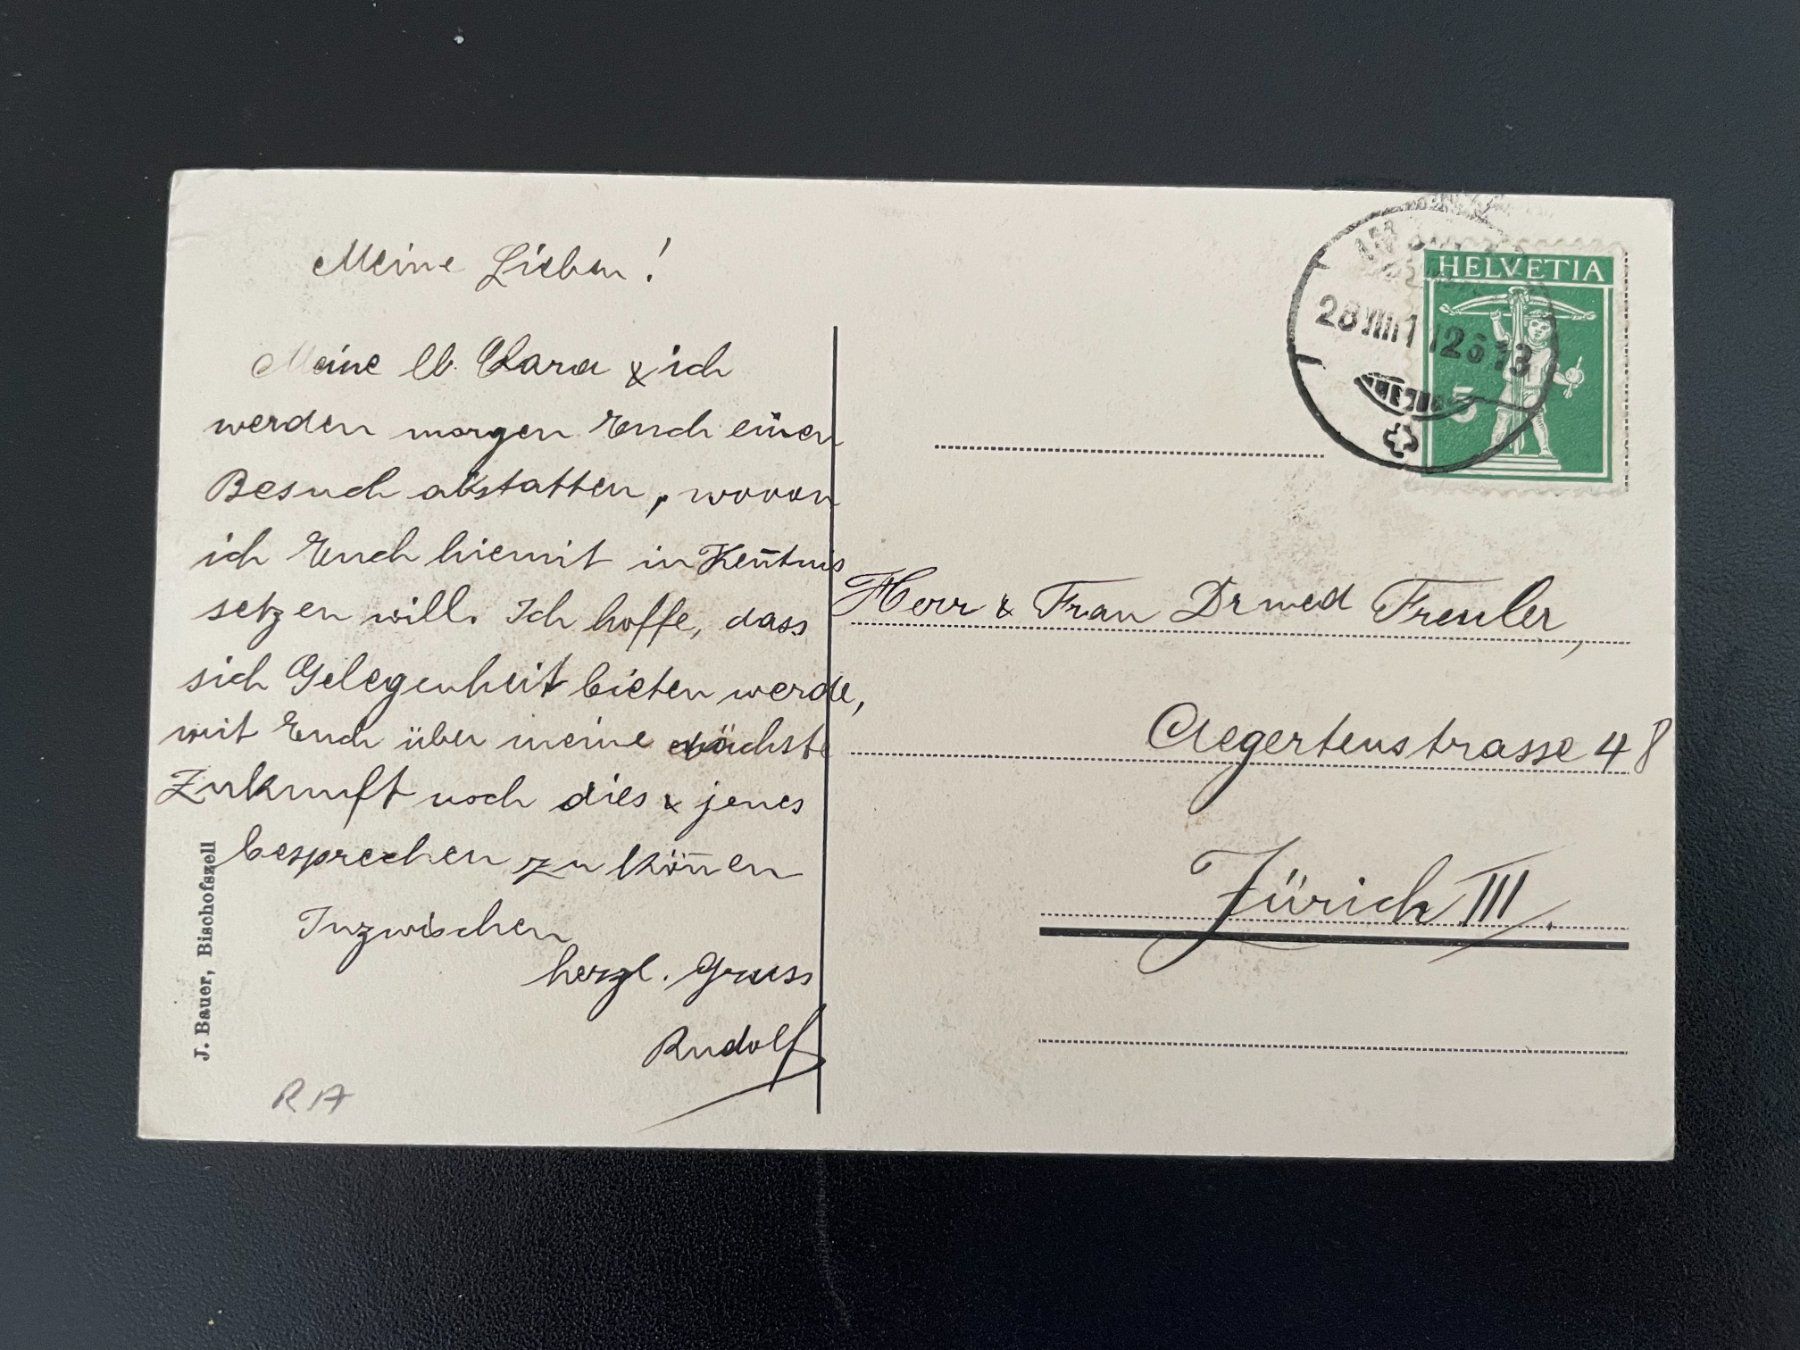 Meine Lieben!
Meine lb. Clara & ich
werden morgen Euch einen
Besuch abstatten, wovon
ich Euch hiemit in Keñtnis
setzen will. Ich hoffe, dass
sich Gelegenheit bieten werde,
mit Euch über meine nächste
Zukunft noch dies & jenes
besprechen zu köñen
Inzwischen
herzl. Gruss
Rudolf
J. Bauer, Bischofszell
HELVETIA
5
28 VIII 1
Herr & Frau Dr med Freuler,
Aegertenstrasse 48
Zürich III.